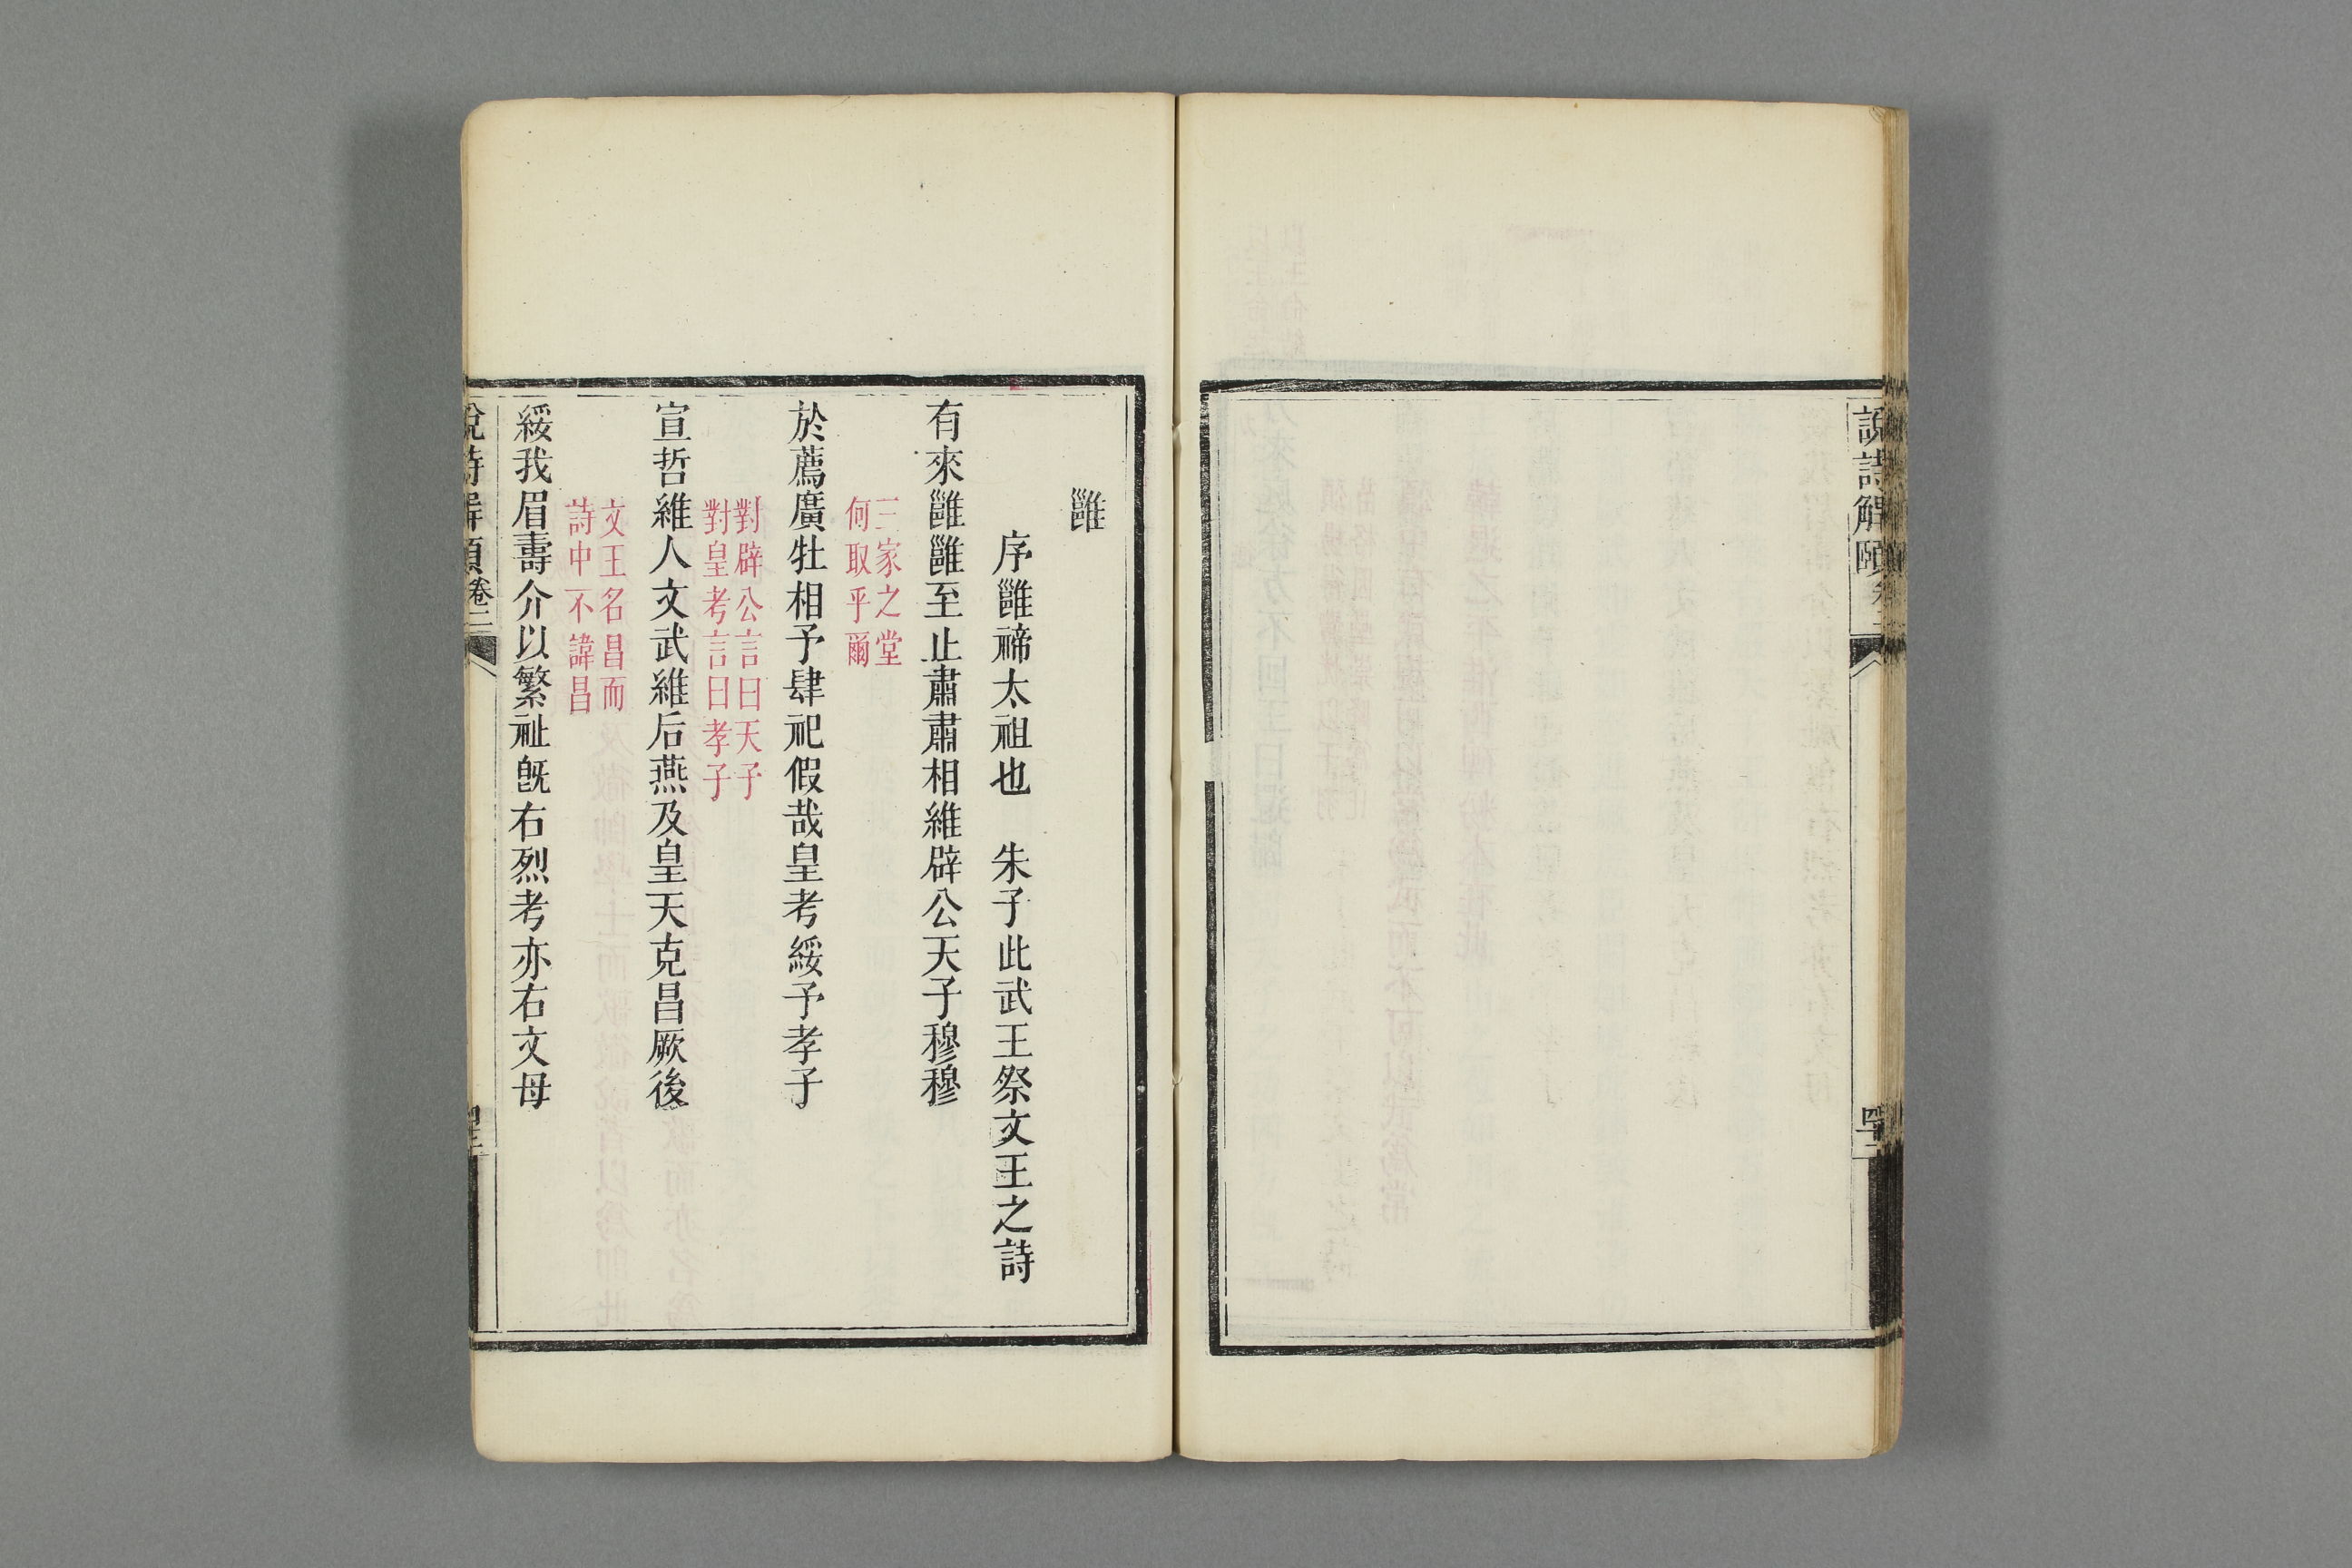 說詩解頤
卷二
雝
序雝禘太祖也　朱子此武王祭文王之詩
有來雝雝至止肅肅相維辟公天子穆穆
三家之堂
何取乎爾
於薦廣牡相予肆祀假哉皇考綏予孝子
對辟公言曰天子
對皇考言曰孝子
宣哲維人文武維后燕及皇天克昌厥後
文王名昌而
詩中不諱昌
綏我眉壽介以繁祉旣右烈考亦右文母